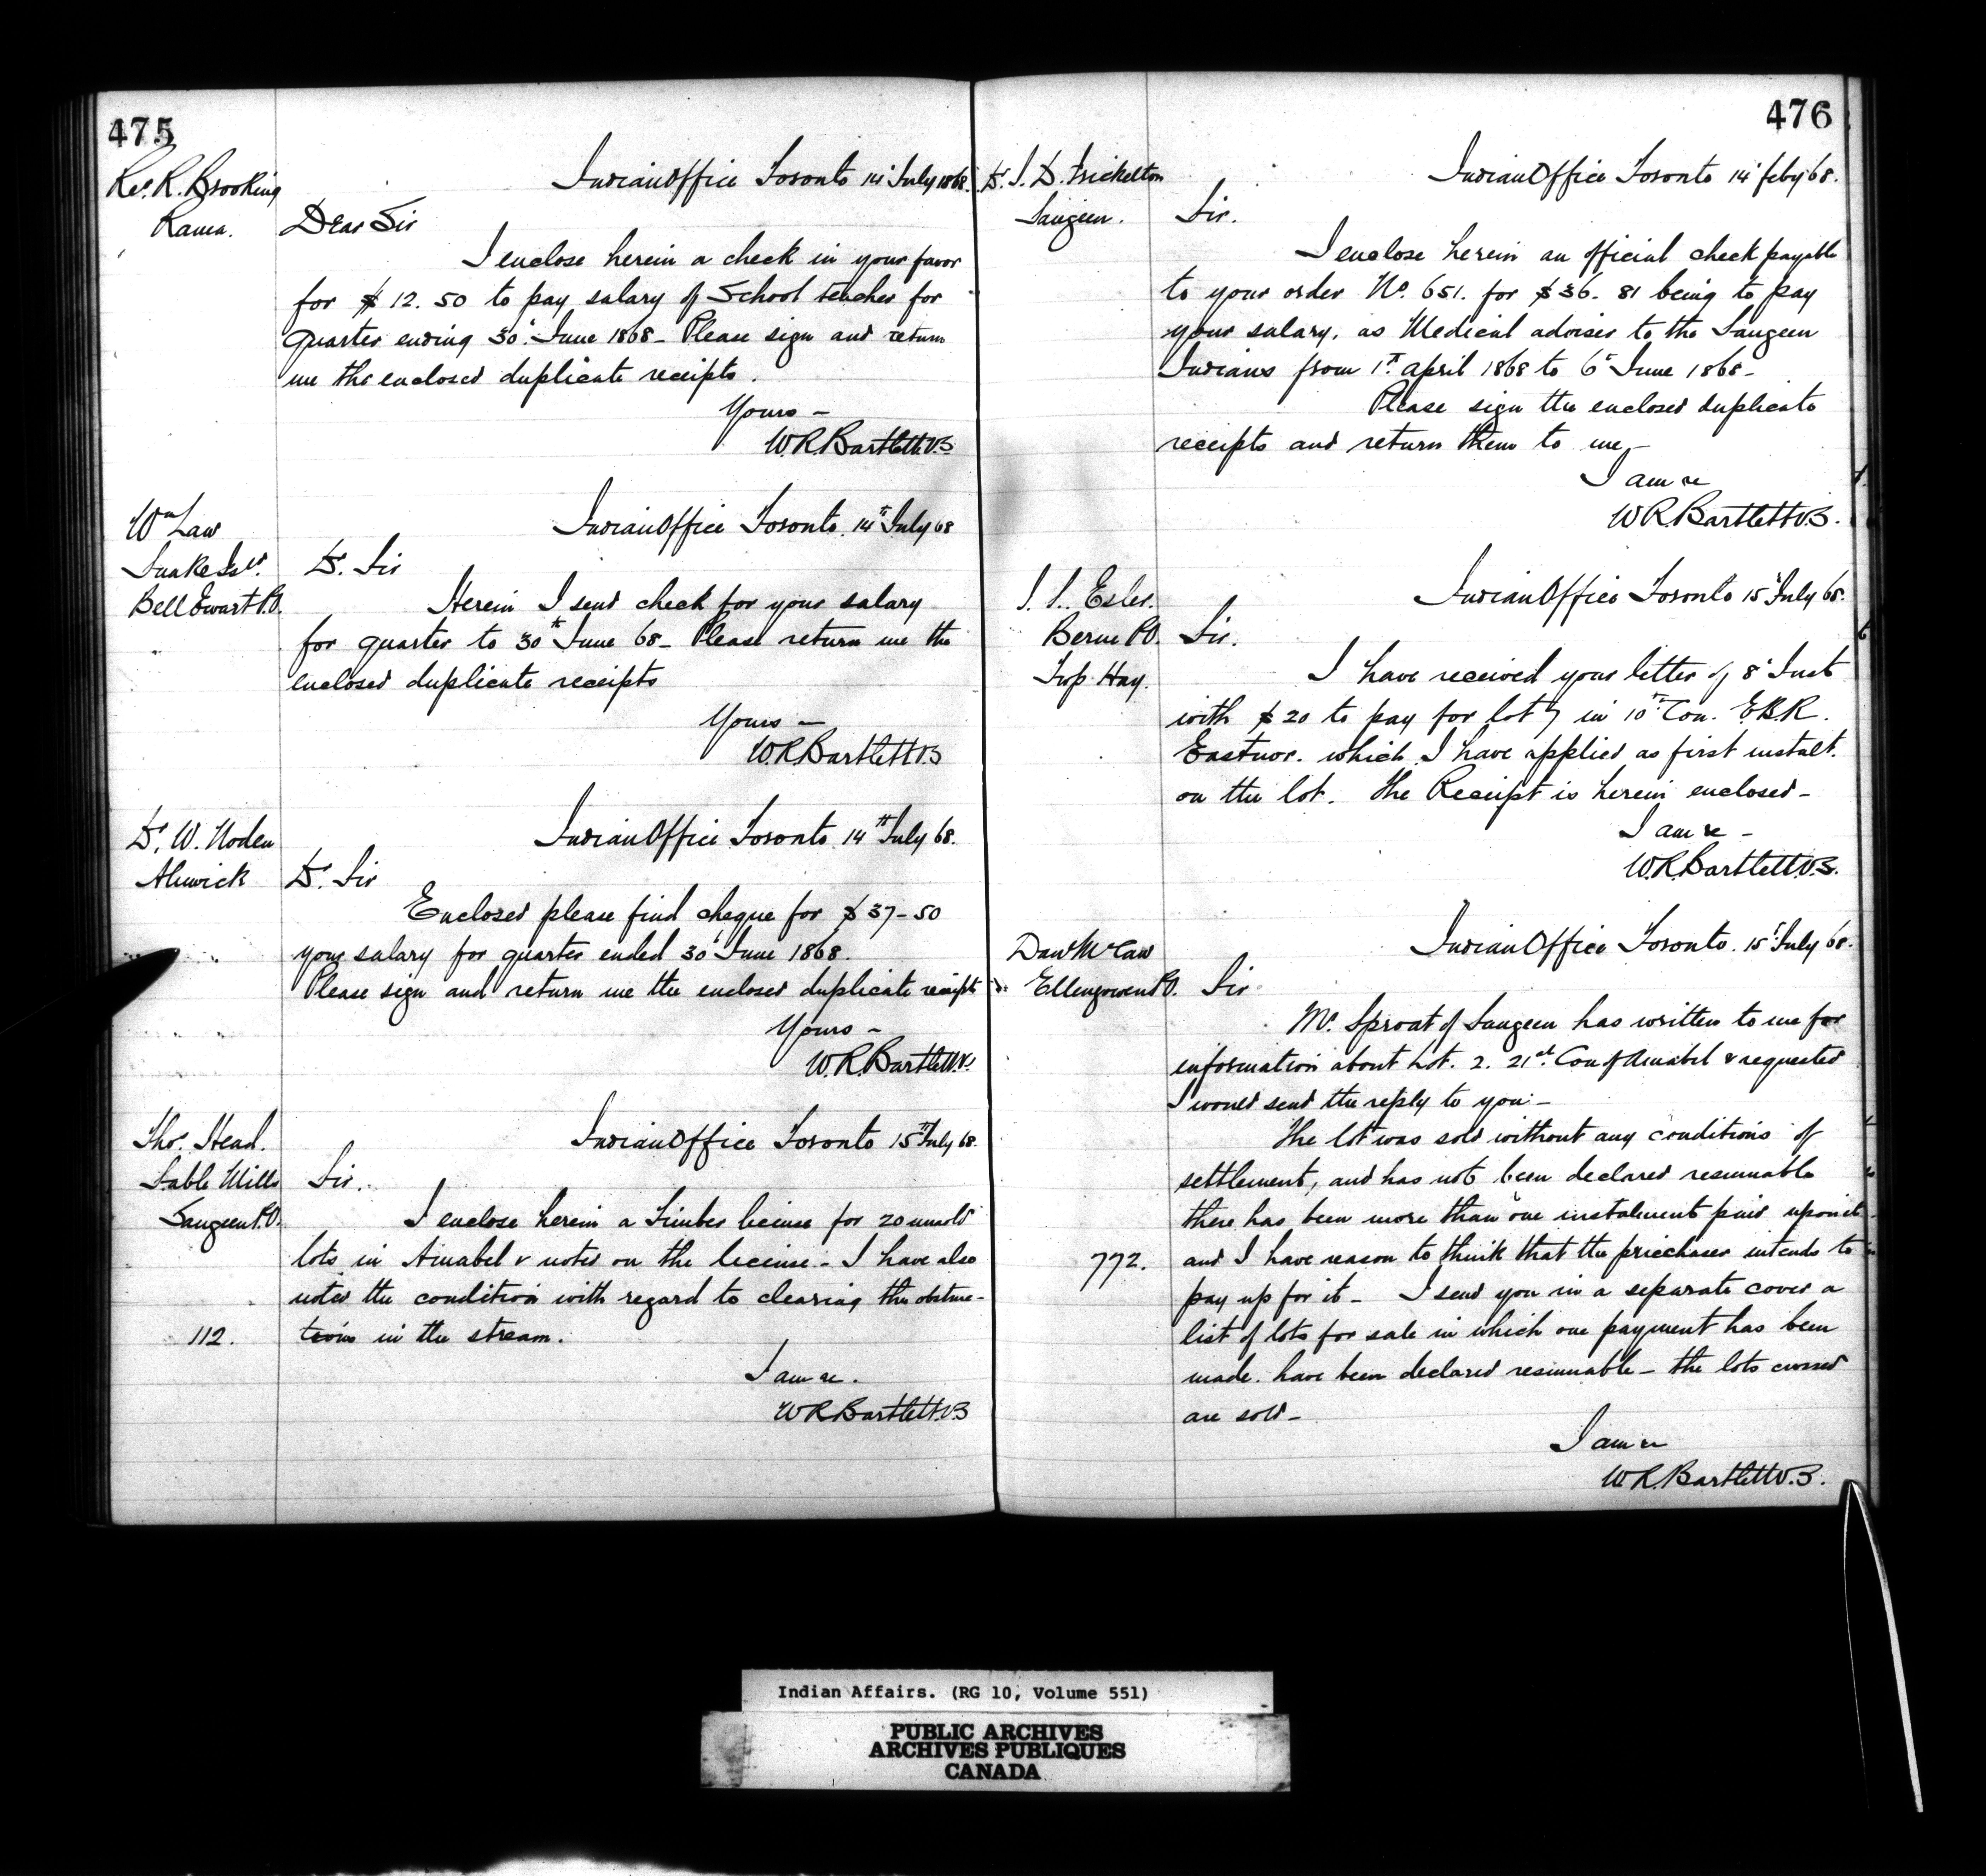 475
Rev. R. Brooking
Rama.
Indian Office Toronto 14th July 1868.
Dear Sir
I enclose herein a check in your favor
for $12.50 to pay salary of School teacher for
quarter ending 30th June 1868 - Please sign and return
me the enclosed duplicate receipts.
Yours -
W.R. Bartlett V.S
Wm Law
Snake Isld.
Bell Ewart P.O.
Indian Office Toronto. 14th July 68
Dr. Sir
Herein I send check for your salary
for quarter to 30th June 68 - Please return me the
enclosed duplicate receipts
Yours -
W.R. Bartlett V.S
Dr. W. Noden
Alnwick
Indian Office Toronto. 14th July 68.
Dr. Sir
Enclosed please find cheque for $37-50
your salary for quarter ended 30th June 1868.
Please sign and return me the enclosed duplicate receipts
Yours -
W.R. Bartlett V.
Thos. Head.
Sable Mills
Saugeen P.O.
Indian Office Toronto 15th July 68.
Sir.
I enclose herein a Timber license for 20 unsold
lots in Amabel & noted on the license - I have also
noted the condition with regard to clearing the obstruc-
112.
tions in the stream.
I am &c.
W R Bartlett V.S
476
Dr. S. D. Trickelton
Saugeen.
Indian Office Toronto 14 feby 68.
Sir.
I enclose herein an official check payable
to your order No. 651. for $36.81 being to pay
your salary, as Medical adviser to the Saugeen
Indians from 1st. April 1868 to 6th June 1868 -
Please sign the enclosed duplicate
receipts and return them to me -
I am &c
W R. Bartlett V.S.
J. J. Esler.
Berne P.O.
Twp. Hay.
Indian Office Toronto 15th July 68.
Sir.
I have received your letter of 8th Inst
with $20 to pay for lot 7 in 10th Con. E.B.R.
Eastnor. which I have applied as first instalt.
on the lot. The Receipt is herein enclosed -
I am &c -
W.R. Bartlett V.S.
Davd McCaw
Ellengowen P.O.
Indian Office Toronto. 15th July 68.
Sir
Mr. Sproat of Saugeen has written to me for
information about Lot. 2. 21st. Con of Amabel & requested
I would send the reply to you -
The lot was sold without any conditions of
settlement, and has not been declared resumable
there has been more than one instalment paid upon it -
772.
and I have reason to think that the purchaser intends to
pay up for it - I send you in a separate cover a
list of lots for sale in which one payment has been
made. have been declared resumable - the lots crossed
are sold -
I am &c
W.R. Bartlett V.S.
Indian Affairs. (RG 10, Volume 551)
PUBLIC ARCHIVES
ARCHIVES PUBLIQUES
CANADA